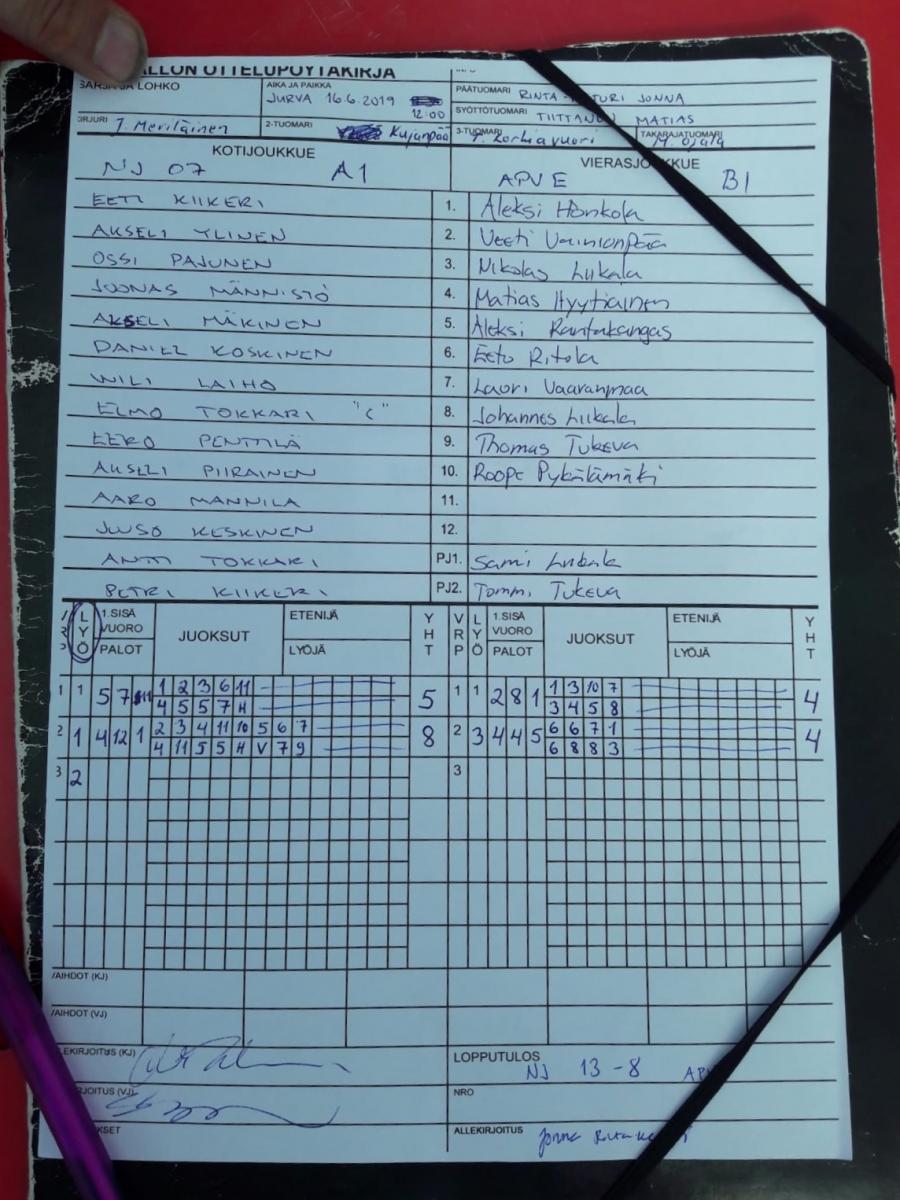 ALLON OTTELUPÖYTÄKIRJA
SARJA JA LOHKO
AIKA JA PAIKKA
JURVA 16.6.2019
12:00
PÄÄTUOMARI RINTA-
TURI JONNA
SYÖTTÖTUOMARI TIITTANEN MATIAS
KIRJURI J. Meriläinen
2-TUOMARI Kujanpää
3-TUOMARI T. Korkiavuori
TAKARAJATUOMARI M. Ojala
KOTIJOUKKUE
VIERASJOUKKUE
NJ 07 A1
APV E B1
EETI KIIKERI 1. Aleksi Honkola
AKSELI YLINEN 2. Veeti Vainionpää
OSSI PAJUNEN 3. Nikolas Liikala
JOONAS MÄNNISTÖ 4. Matias Hyytiäinen
AKSELI MÄKINEN 5. Aleksi Rantakangas
DANIEL KOSKINEN 6. Eetu Ritola
WILI LAIHO 7. Lauri Vaaranmaa
ELMO TOKKARI "C" 8. Johannes Liikala
EERO PENTTILÄ 9. Thomas Tukeva
AKSELI PIIRAINEN 10. Roope Pykälämäki
AARO MANNILA 11.
JUUSO KESKINEN 12.
ANTTI TOKKARI PJ1. Sami Liikala
PETRI KIIKERI PJ2. Tommi Tukeva
LYÖ 1.SISÄ VUORO PALOT JUOKSUT ETENIJÄ LYÖJÄ YHT VRP LYÖ 1.SISÄ VUORO PALOT JUOKSUT ETENIJÄ LYÖJÄ YHT
1 1 5 7 1 2 3 6 11 5 1 1 2 8 1 1 3 10 7 4
4 5 5 7 H 3 4 5 8
2 1 4 12 1 2 3 4 11 10 5 6 7 8 2 3 4 4 5 6 6 7 1 4
4 11 5 5 H V 7 9 6 8 8 3
3 2 3
VAIHDOT (KJ)
VAIHDOT (VJ)
LEKIRJOITUS (KJ)
LOPPUTULOS
NJ 13-8 APV
RJOITUS (VJ)
NRO
KSET
ALLEKIRJOITUS Jonna